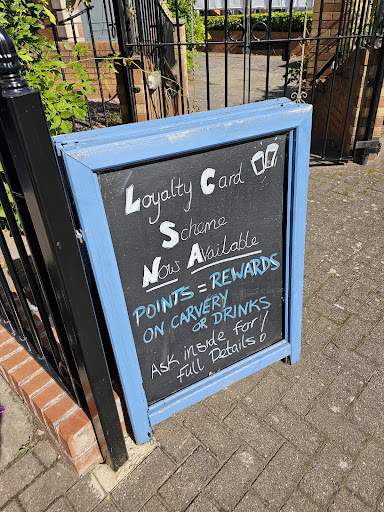 Loyalty Card
Scheme
Now Available
POINTS = REWARDS
ON CARVERY
OR DRINKS
ASK inside for
full Details!